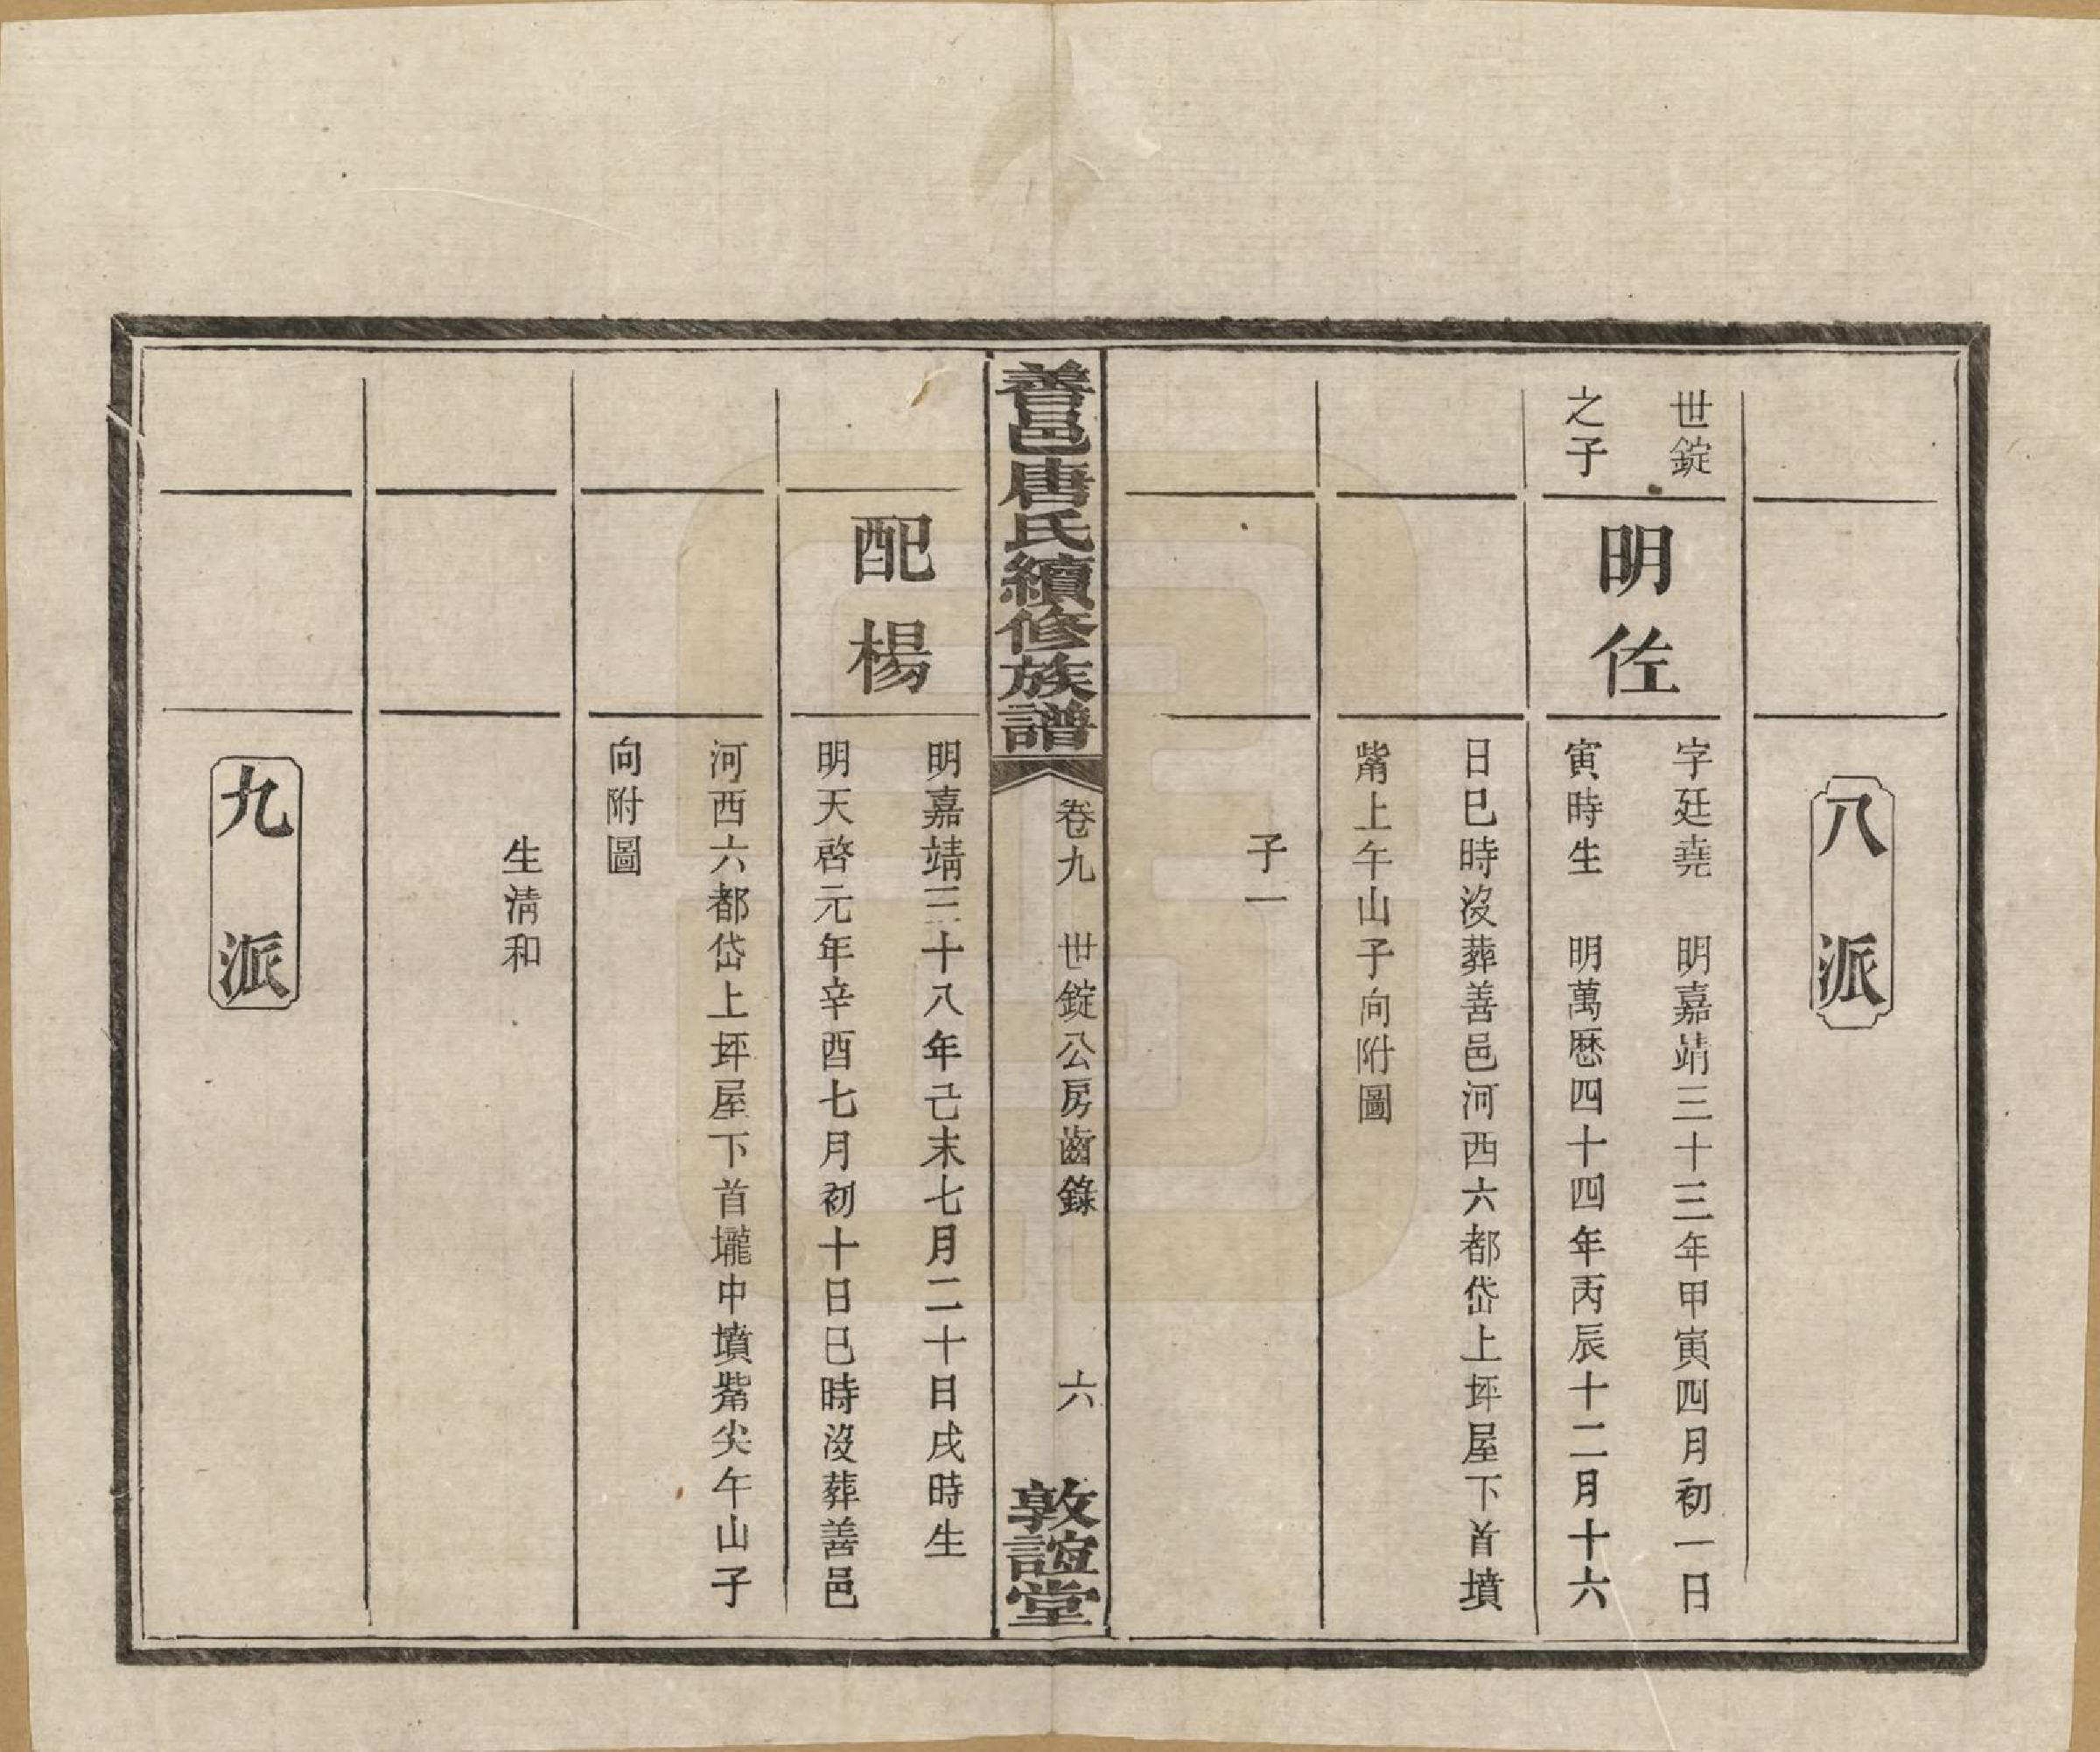 八派
世錠
之子
明佐
字廷堯　明嘉靖三十三年甲寅四月初一日
寅時生　明萬厯四十四年丙辰十二月十六
日巳時沒葬善邑河西六都岱上坪屋下首墳
觜上午山子向附圖
子一
善邑唐氏續修族譜
卷九　世錠公房齒錄　六
敦誼堂
配楊
明嘉靖三十八年己未七月二十日戌時生
明天啓元年辛酉七月初十日巳時沒葬善邑
河西六都岱上坪屋下首壠中墳觜尖午山子
向附圖
生清和
九派